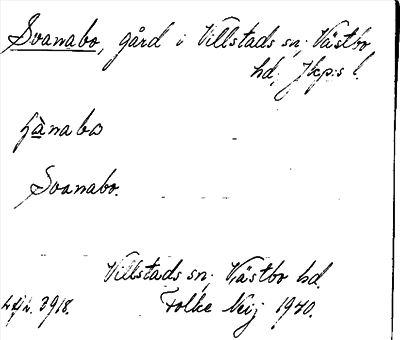 Svanabo, gård i Villstads sn; Västbo
hd; Jkp:s l.
Svanabo.
Villstads sn; Västbo hd.
3918. Folke Neij 1940.